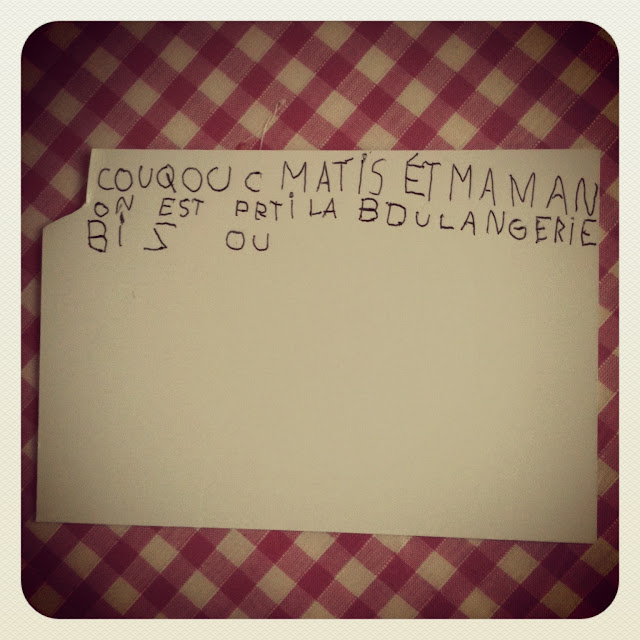 COUQOU C MATIS ÉT MAMAN
ON EST PRTI LA BOULANGERIE
BIS OU